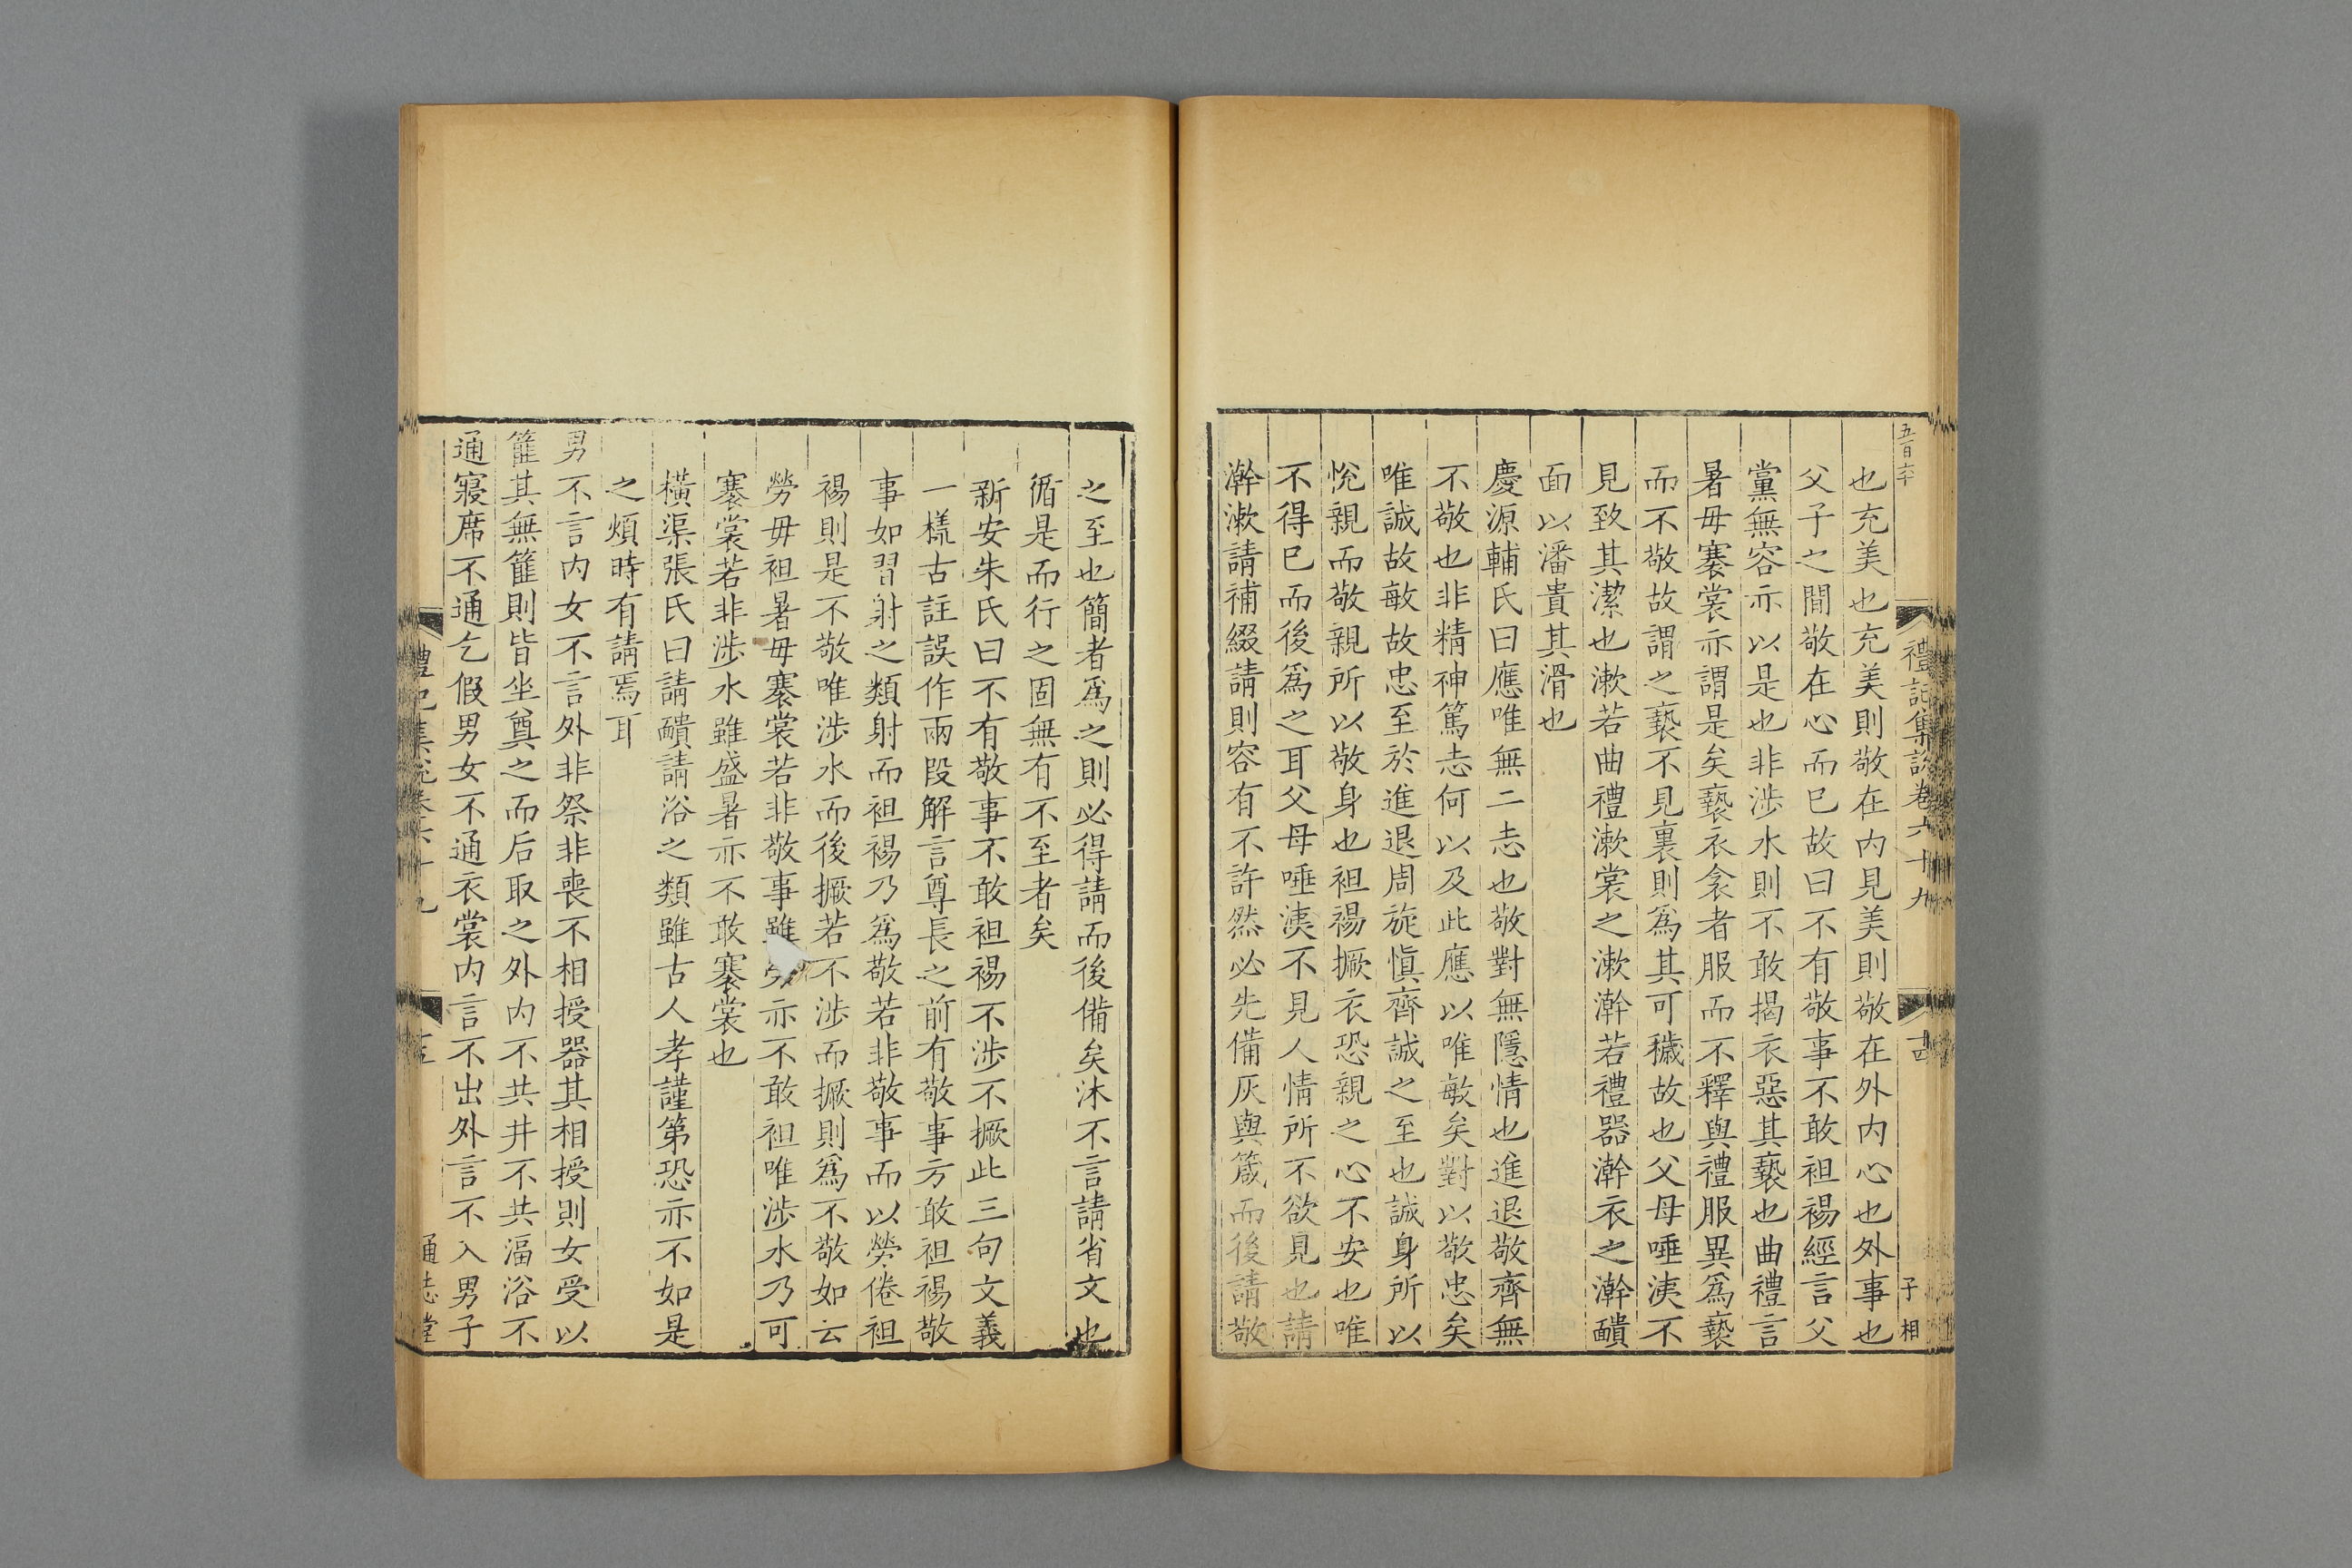 五百六十
禮記集說卷六十九
十四
子相
也充美也充美則敬在内見美則敬在外内心也外事也
父子之間敬在心而已故曰不有敬事不敢袒裼經言父
黨無容亦以是也非涉水則不敢揭衣惡其褻也曲禮言
暑毋褰裳亦謂是矣褻衣衾者服而不釋與禮服異爲褻
而不敬故謂之褻不見裏則爲其可穢故也父母唾洟不
見致其潔也漱若曲禮漱裳之漱澣若禮器澣衣之澣靧
面以潘貴其滑也
慶源輔氏曰應唯無二志也敬對無隱情也進退敬齊無
不敬也非精神篤志何以及此應以唯敏矣對以敬忠矣
唯誠故敏故忠至於進退周旋愼齊誠之至也誠身所以
悅親而敬親所以敬身也袒裼撅衣恐親之心不安也唯
不得已而後爲之耳父母唾洟不見人情所不欲見也請
澣漱請補綴請則容有不許然必先備灰與箴而後請敬
之至也簡者爲之則必得請而後備矣沐不言請省文也
循是而行之固無有不至者矣
新安朱氏曰不有敬事不敢袒裼不涉不撅此三句文義
一樣古註誤作兩段解言尊長之前有敬事方敢袒裼敬
事如習射之類射而袒裼乃爲敬若非敬事而以勞倦袒
裼則是不敬唯涉水而後撅若不涉而撅則爲不敬如云
勞毋袒暑毋褰裳若非敬事雖勞亦不敢袒唯涉水乃可
褰裳若非涉水雖盛暑亦不敢褰裳也
橫渠張氏曰請靧請浴之類雖古人孝謹第恐亦不如是
之煩時有請焉耳
男不言内女不言外非祭非喪不相授器其相授則女受以
篚其無篚則皆坐奠之而后取之外内不共井不共湢浴不
通寢席不通乞假男女不通衣裳内言不出外言不入男子
禮記集說卷六十九
十五
通志堂